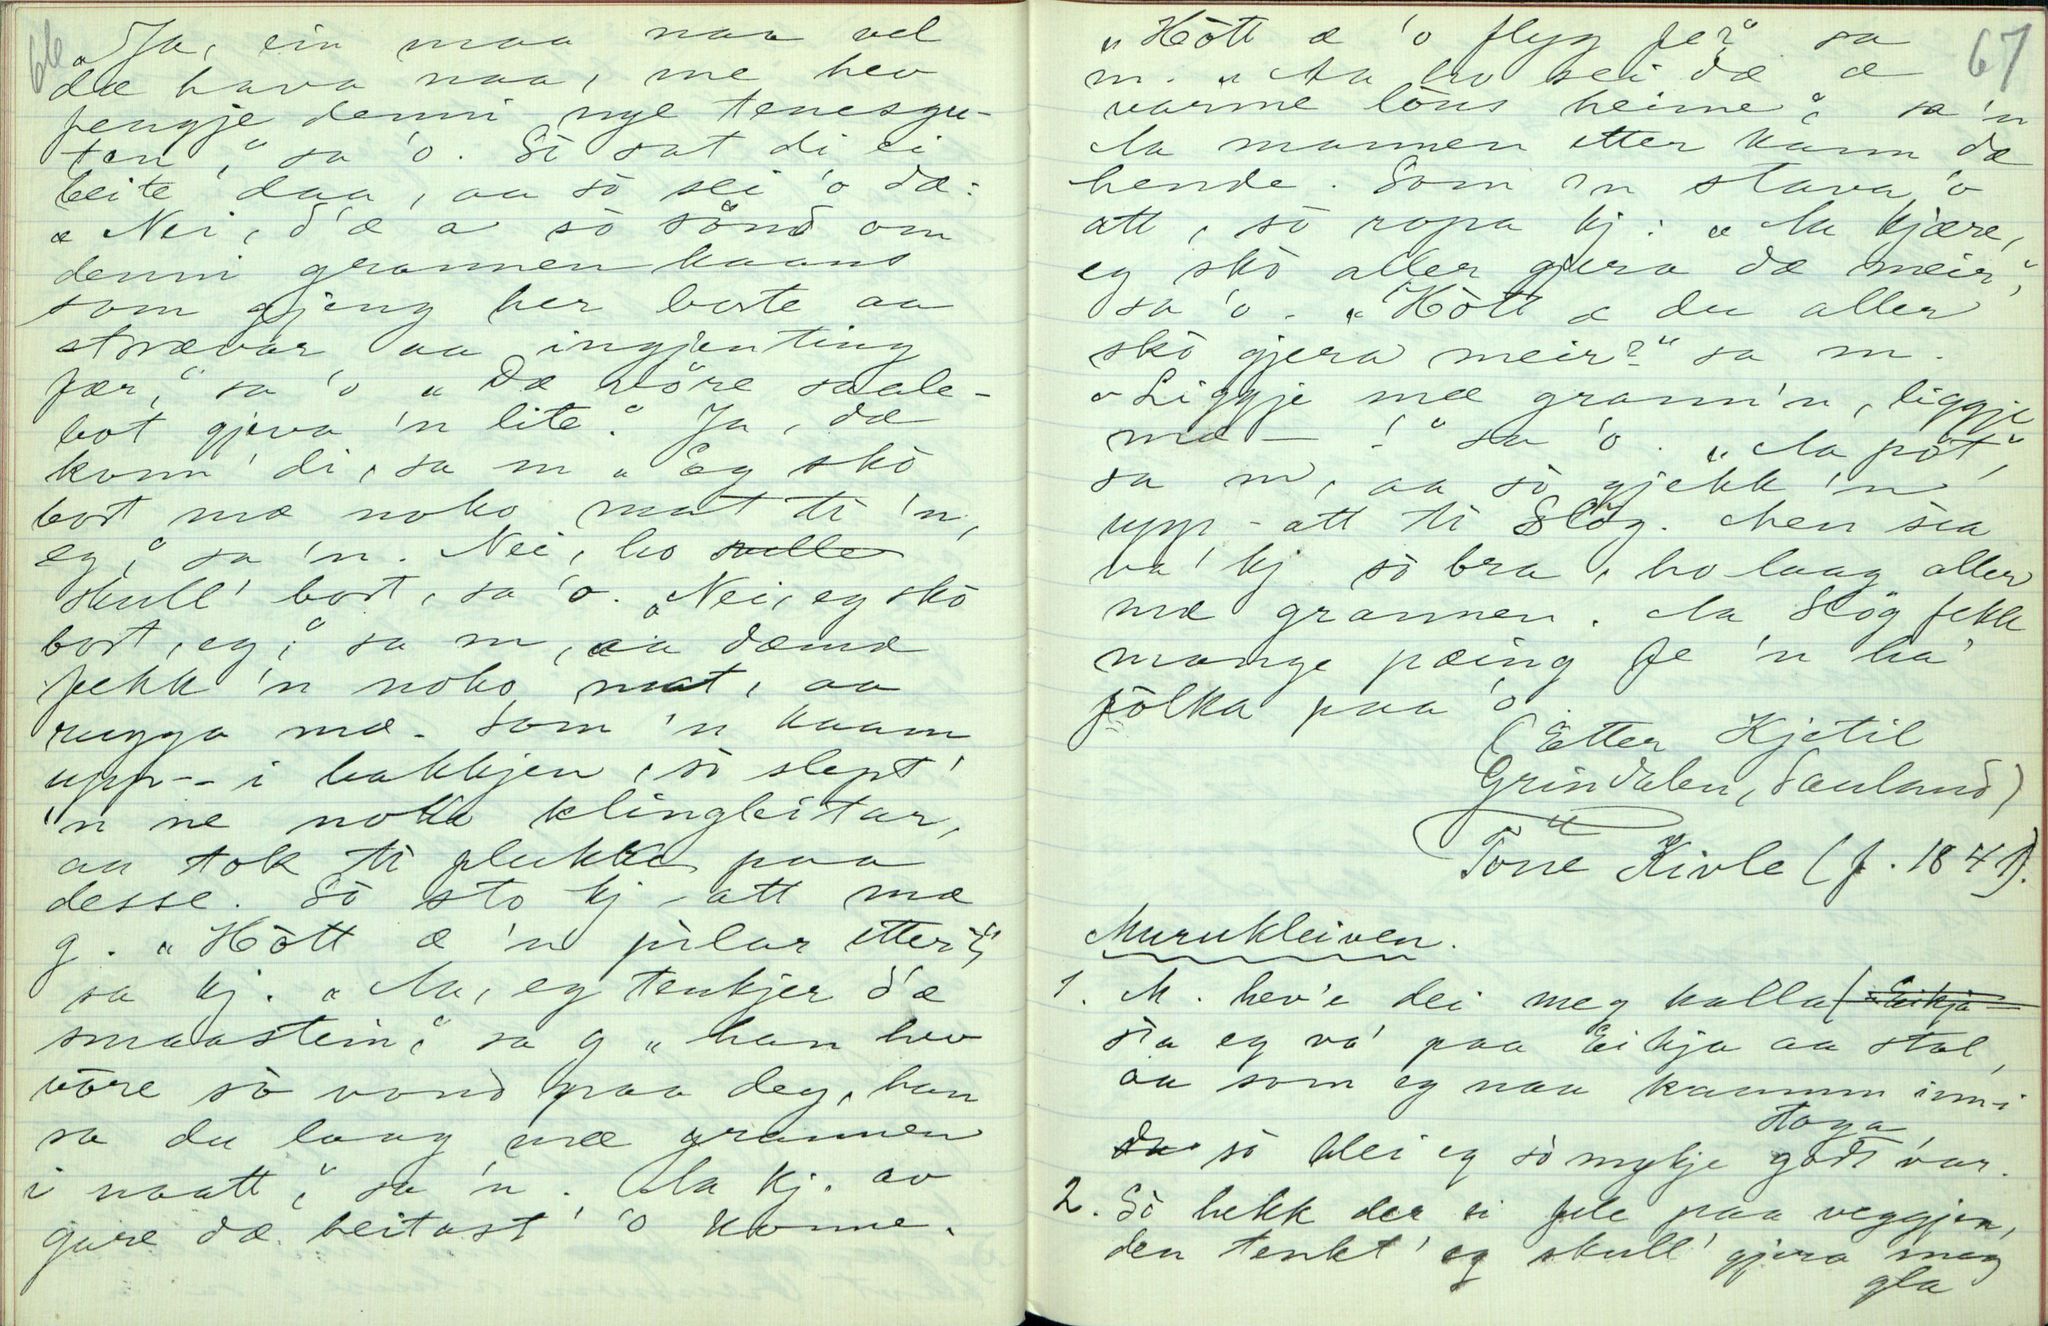 66
„Ja, ein maa naa vel
dæ hava naa, me hev
fengje denni nye tenesgu-
ten," sa 'o. Sò sat di ei
beite' daa, aa sò sei 'o dæ:
„Nei, d'æ a sò sònd om
denni grannen kaans
som gjeng her borte aa
strævar aa ingjenting
fær," sa 'o „Dæ vòre saale-
bot gjeva 'n lite." Ja, dæ
kunn' di, sa m „eg skò
bort mæ noko mat ti 'n,
eg," sa 'n. Nei, ho
skull' bort, sa 'o. „Nei, eg skò
bort, eg," sa m, aa dæmæ
fekk 'n noko mat, aa
rugga mæ. Som 'n kaam
upp-i bakkjen, sò slept'
'n ne noko klingleitar,
aa tok ti plukke paa
desse. Sò sto kj att mæ
g. „Hòtt æ 'n pilar etter?"
sa kj. „Aa, eg tenkjer d'æ
smaastein," sa g „han hev
vòre sò vond paa deg, han
sa du laag mæ grannen
i naatt," sa 'n. Aa kj. av
gare dæ beitast' 'o kunne.
67
„Hòtt æ 'o flyg fe?" sa
m. „Aa ho sei dæ æ
varme lòus heime," sa 'n
Aa mannen etter kann dæ
hende. Som 'n stava 'o
att, sò ropa kj: „Aa kjære,
eg skò aller gjera dæ meir,"
sa 'o. „Hòtt æ du aller
skò gjera meir?" sa m.
„Liggje mæ grann'n, liggje
mæ — !" sa 'o. „Aa pòt,"
sa m, aa sò gjekk 'n
upp-att ti Slòg. Men sia
va' kj sò bra, ho laag aller
mæ grannen. Aa Slòg fekk
mange pæing fe 'n ha'
pòlka paa 'o.
(Etter Kjetil
Grindalen, Sauland)
Tone Kivle (f. 1841).
Murukleiven.
1. M. hev'e dei meg kalla (Eikja
sia eg va' paa Eikja aa stal,
aa som eg naa kaamm inn-i
stoga
da sò blei eg sò mykje godt var.
2. Sò hekk der ei fele paa veggjen,
den tenkt' eg skull' gjera meg
gla